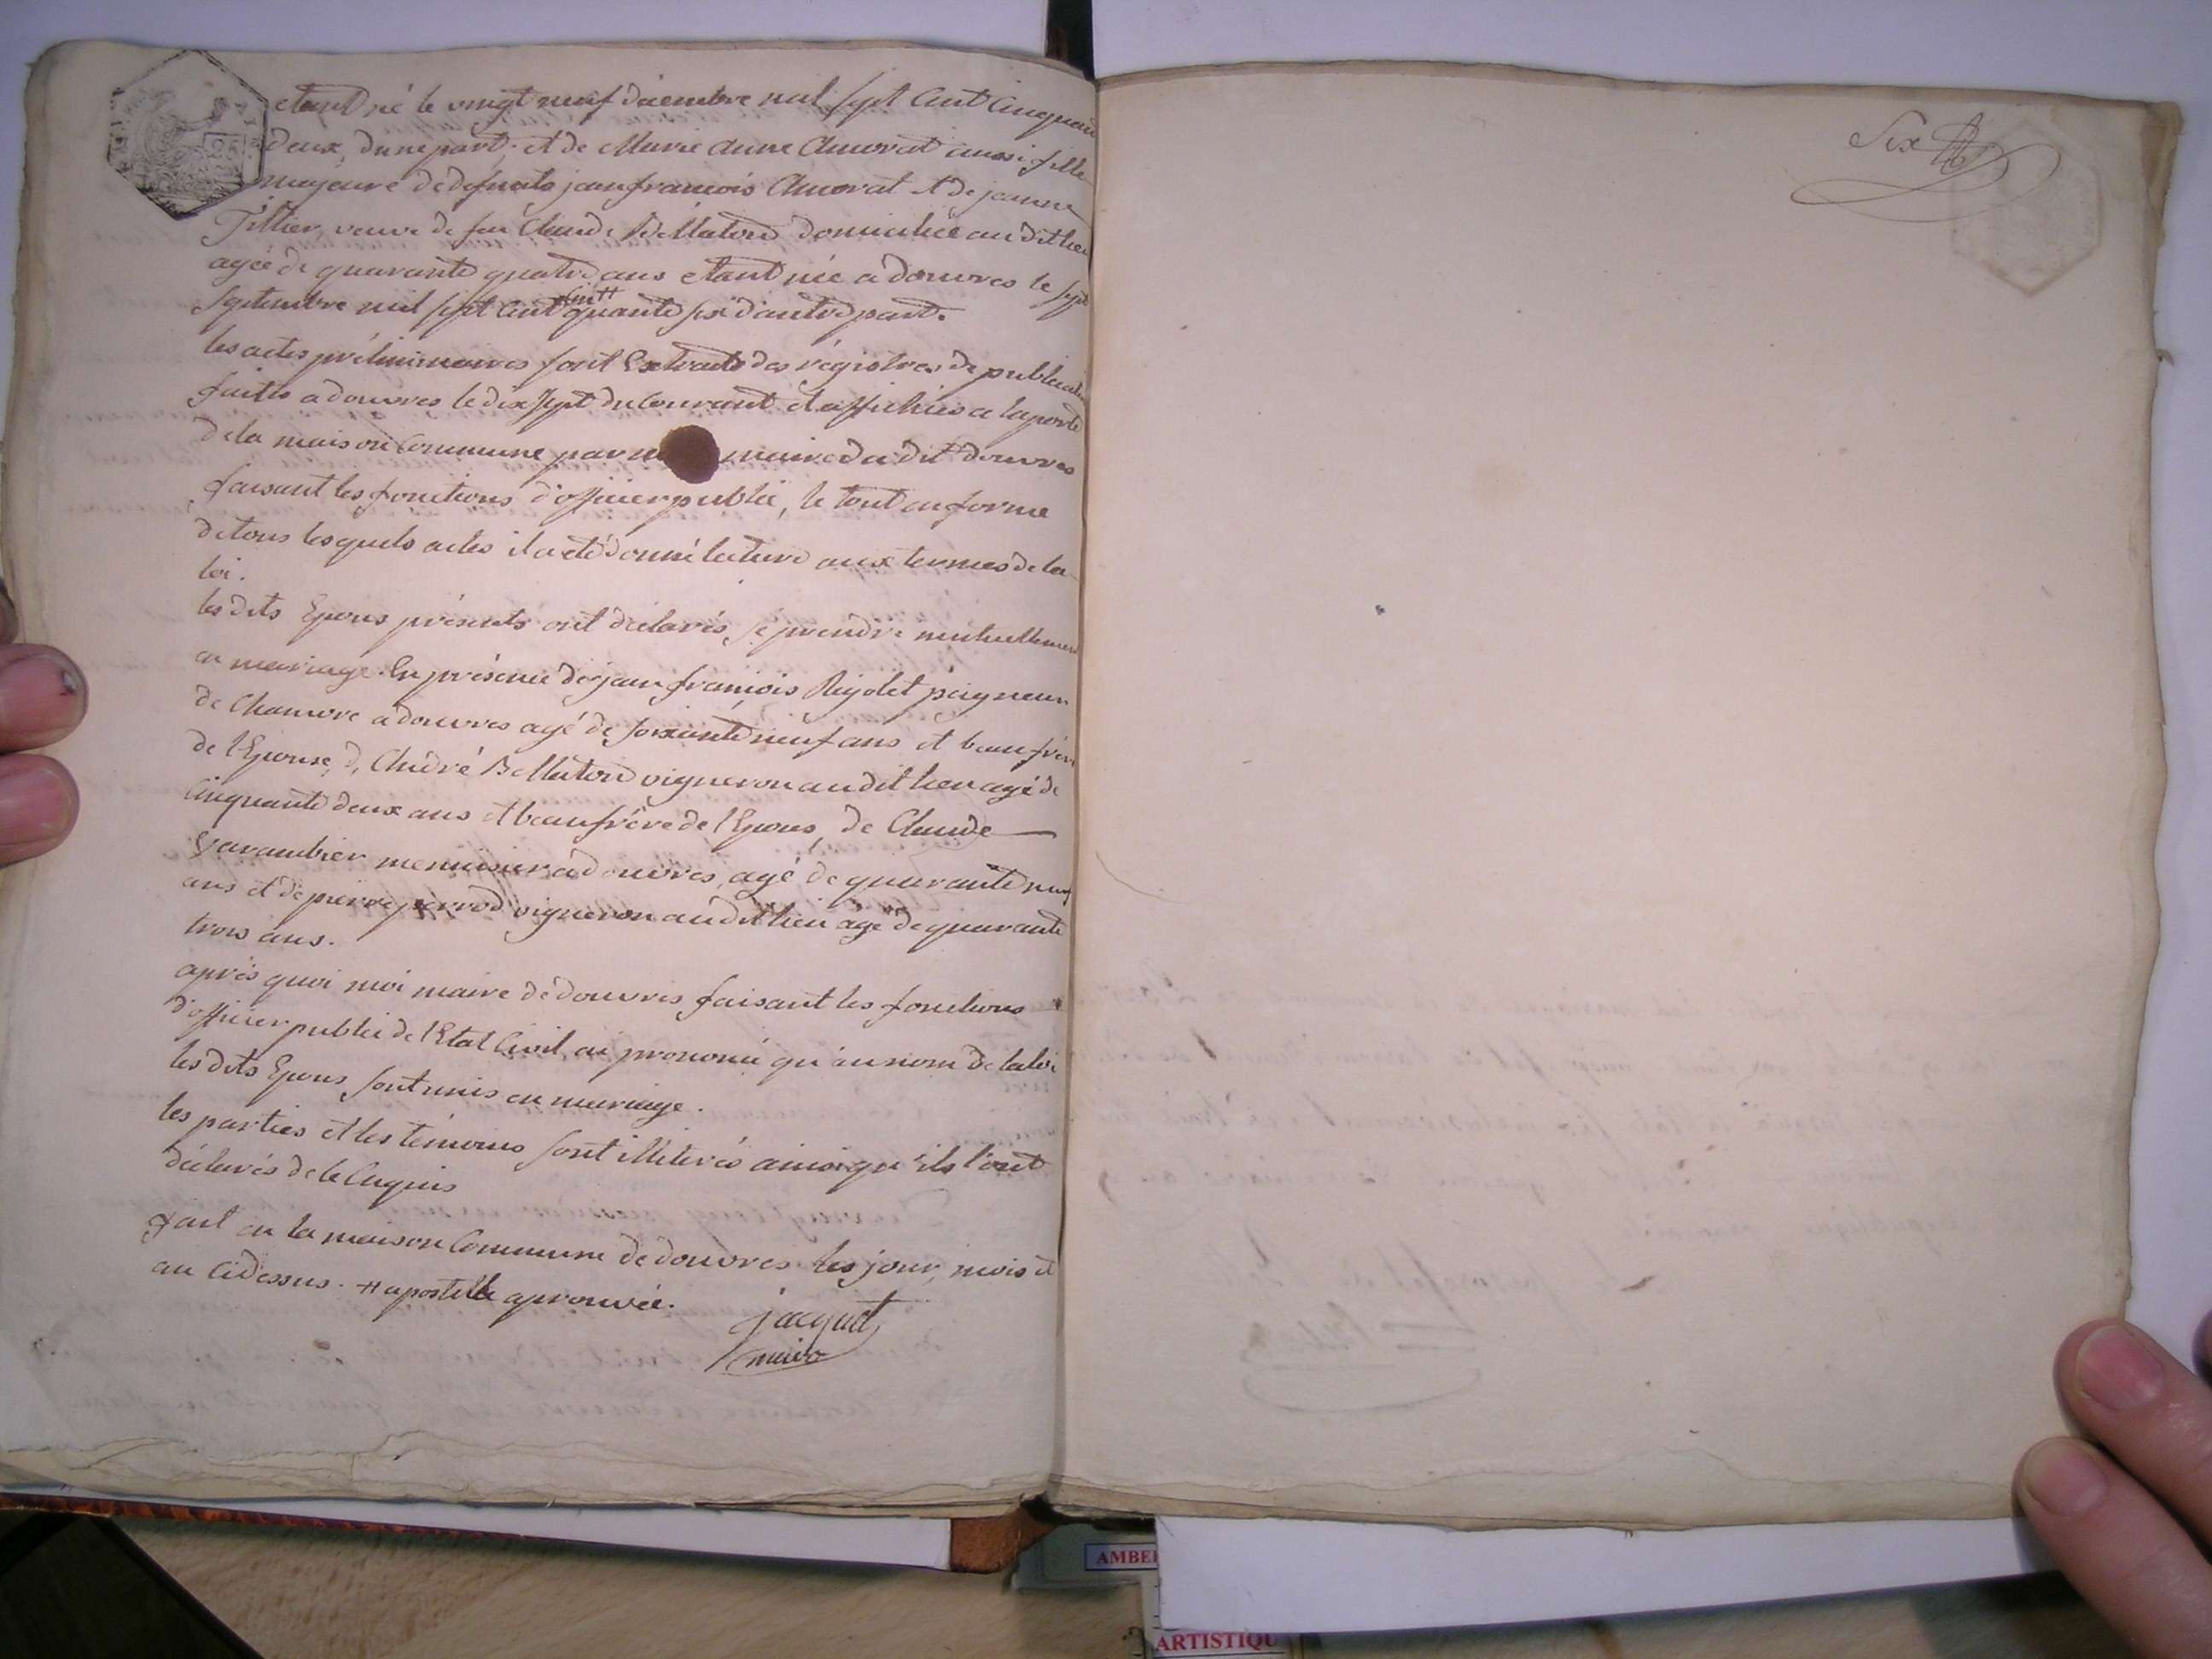 etant né le vingt neuf décembre mil sept cent cinquan
deux, d'une part; et de Marie Anne Amorat aussi fille
majeure de defunts jean francois Amorat et de jeanne
Tillier, veuve de feu Claude Bellaton domiciliée audit lieu
agée de quarante quatre ans etant née a douvres le sept
septembre mil sept cent cin++ quante six d'autre part.
les actes préliminaires sont Extraits des régistres de publication
faittes a douvres le dix sept du Courant et affichées a la porte
de la maison Commune par maire du dit douvres
faisant les fonctions d'officier public, le tout en forme
de tous lesquels actes il a eté donné lecture aux termes de la
loi.
les dits Epous présents ont déclarés se prendre mutuellement
en mariage. En présence de jean françois Reydet peigneur
de Chanvre a douvres agé de soixante neuf ans et beaufrère
de l'Epouse, d'André Bellaton vigneron au dit lieu agé de
Cinquante deux ans et beaufrère de l'Epous, de Claude
Varambier menuisier a douvres, agé de quarante neuf
ans et de pierre perrod vigneron au dit lieu agé de quarante
trois ans.
après quoi moi maire de douvres faisant les fonctions
d'officier public de l'Etat Civil, ai prononcé qu'au nom de la loi
les dits Epous sont unis en mariage.
les parties et les témoins sont illiterés ainsi qu'ils l'ont
déclarés de le Enquis
fait en la maison Commune de douvres les jour, mois et
an cidessus. ++ apostille aprouvée.
jacquet
maire
Six
AMBE
ARTISTIQU